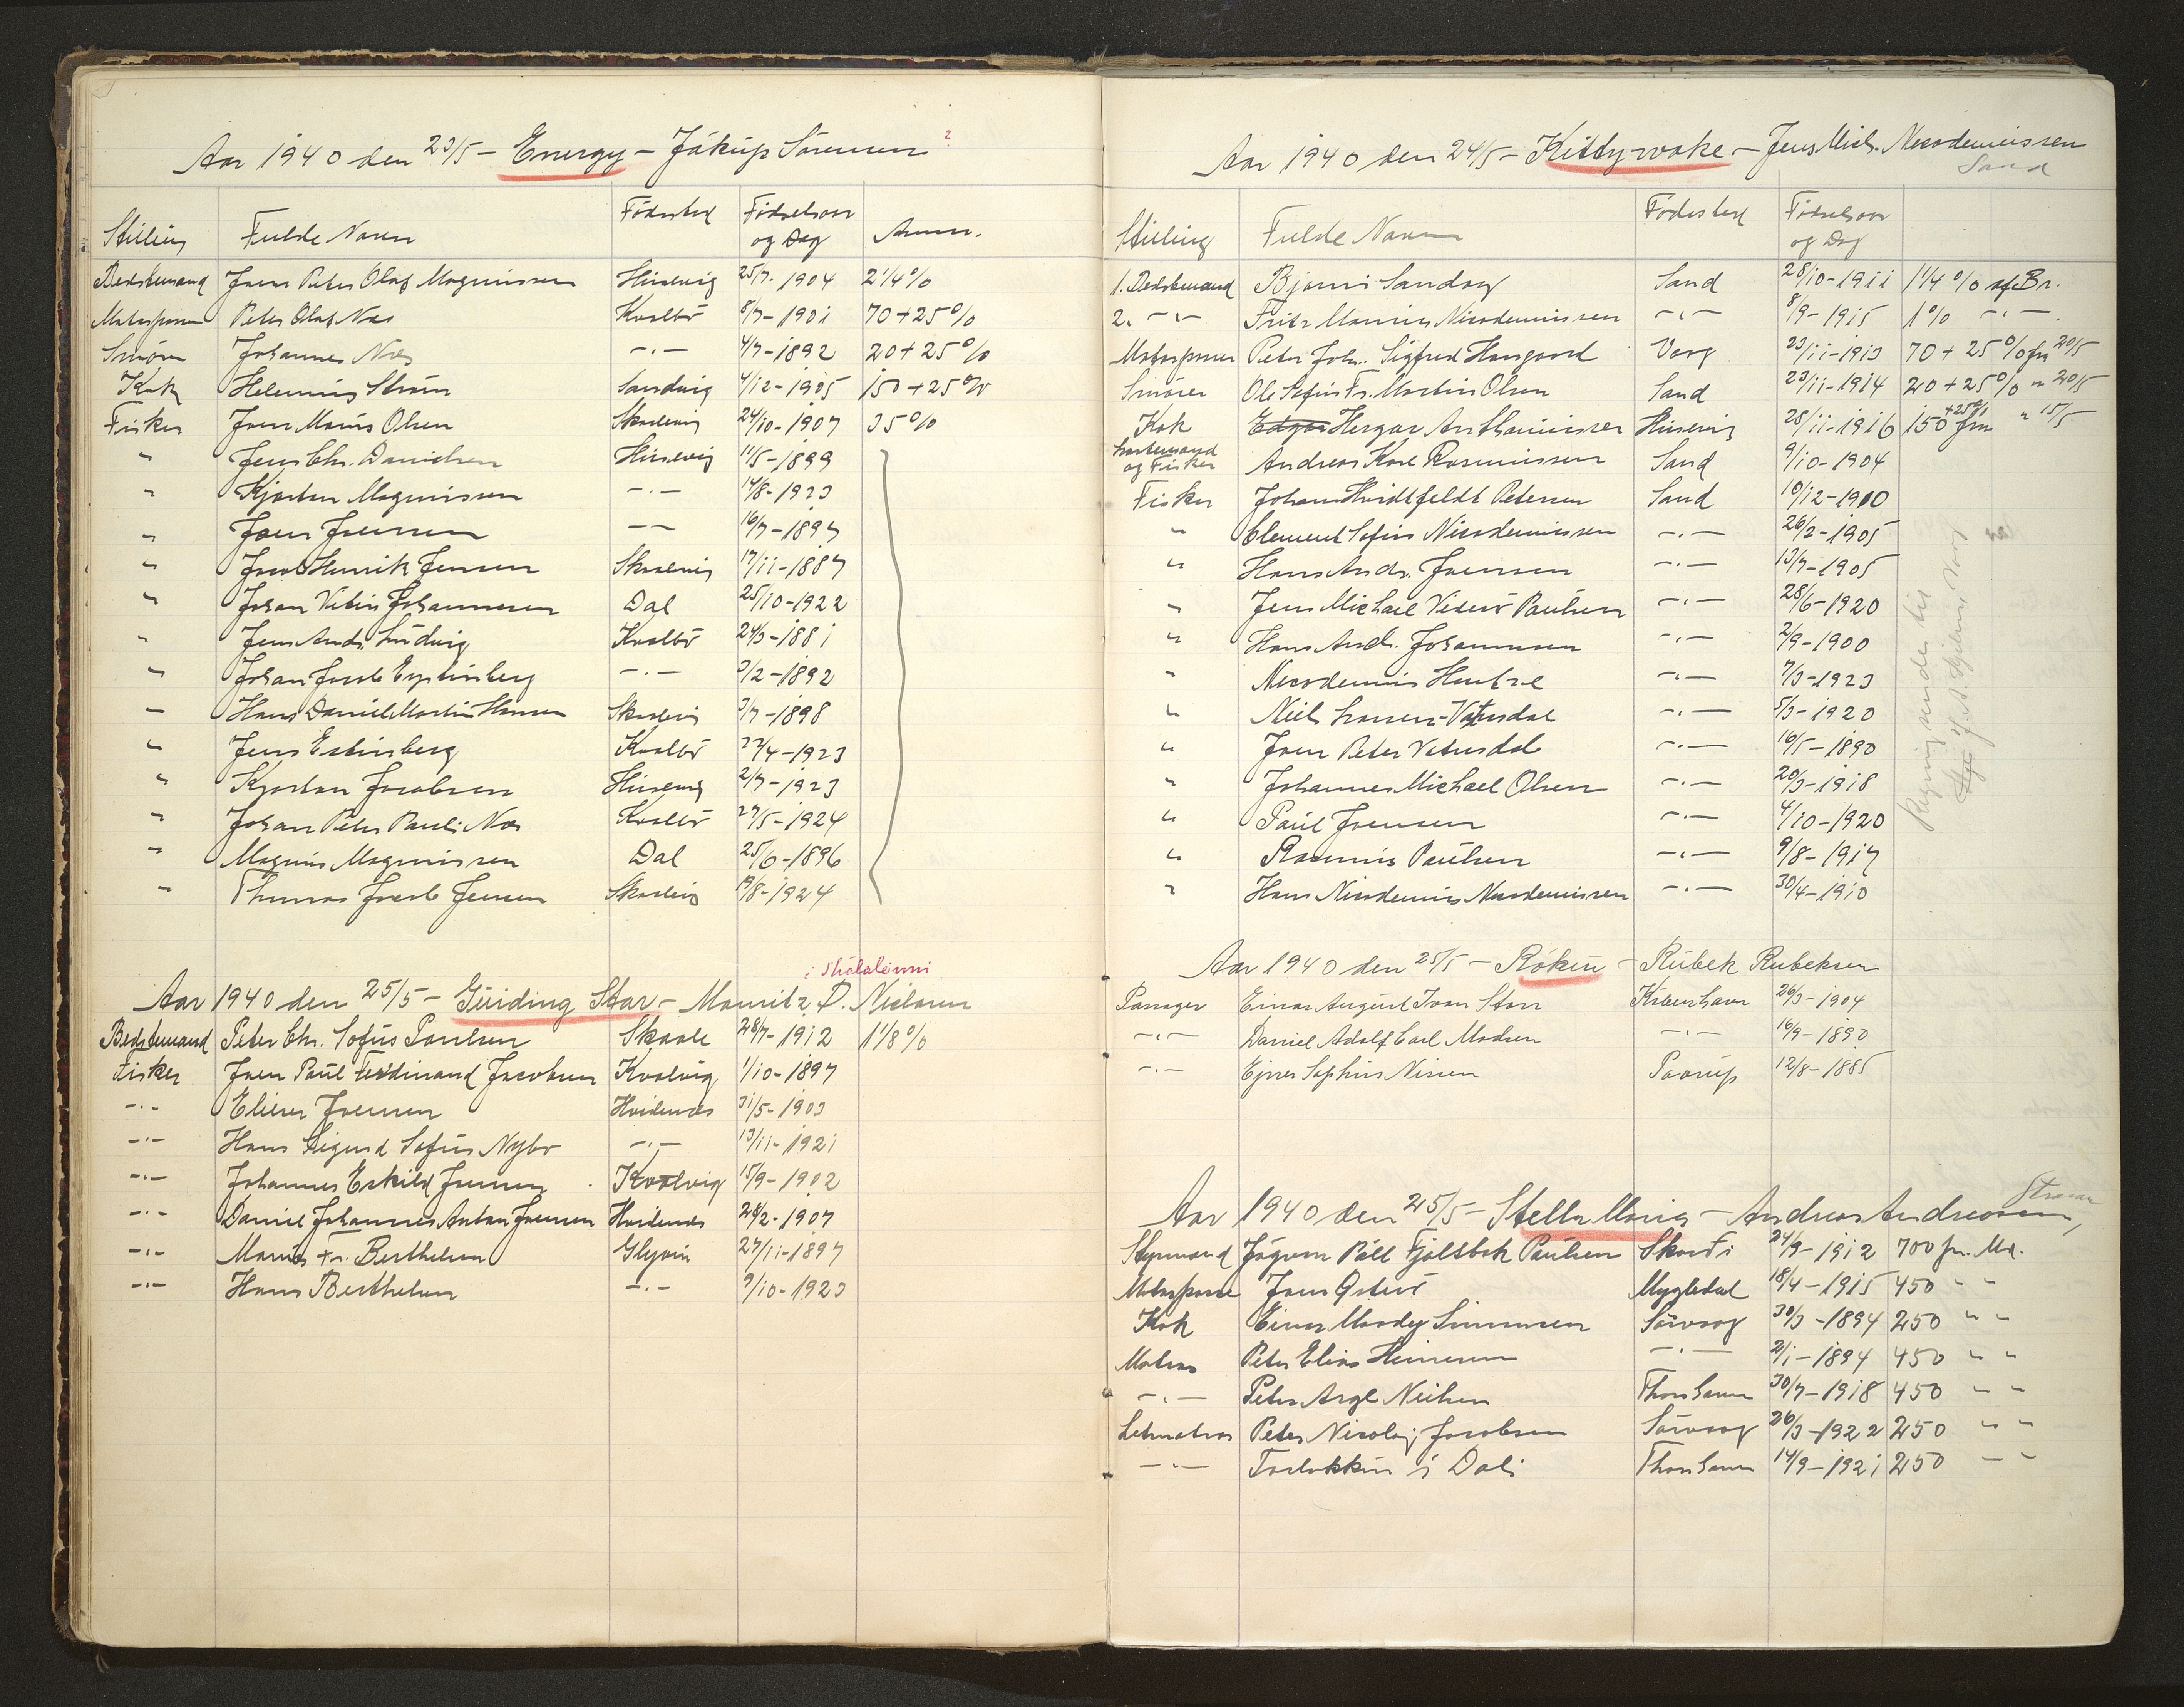 Aar 1940 den 23/5 – Energy – Jákúp Sörensen 2
Stilling Fulde Navn Födested Födselsaar og Dag Anm.
Bedstemand Joen Peter Olaf Magnussen Húsevig 25/7-1904 2 1/4 %
Motorpasser Peter Olaf Næs Kvalbö 8/7-1901 70+25%
Smörer Johannes Næs –"– 4/7-1892 20+25%
Kok Helennius Ström Sandvig 4/12-1905 150+25%
Fisker Joen Marius Olsen Skaalevig 24/10-1907 35%
" Jens Chr. Danielsen Húsevig 11/5-1899
" Kjartan Magnussen –"– 14/8-1923
" Joen Joensen –"– 16/7-1897
" Jacob Henrik Jensen Skaalevig 17/11-1887
" Johan Johannesen Dal 25/10-1922
" Jens Andr. Ludvig Kvalbö 24/3-1881
" Johan Jacob –"– 3/2-1892
" Hans Daniel Martin Hansen Skaalevig 3/7-1898
" Jens Kvalbö 22/4-1923
" Kjartan Jacobsen Húsevig 2/7-1923
" Johan Peter Pauli Næs Kvalbö 27/5-1924
" Magnus Magnussen Dal 25/6-1896
" Thomas Jacob Jensen Skaalevig 19/8-1924
i Skálalönni
Aar 1940 den 25/5 – Guiding Star – Mouritz D. Nielsen
Bedstemand Peter Chr. Sofus Poulsen Skaale 28/7-1912 1 1/8 %
Fisker Joen Paul Ferdinand Jacobsen Kvalvig 1/10-1897
–"– Elieser Joensen Hvidenæs 31/5-1903
–"– Hans Sigurd Sofus Nybo –"– 13/11-1921
–"– Johannes Eskild Joensen Kvalvig 15/9-1902
–"– Daniel Johannes Anton Joensen Hvidenæs 28/2-1907
–"– Marius Fr. Berthelsen Glyvra 27/11-1897
–"– Hans Berthelsen –"– 9/10-1923
Aar 1940 den 24/5 – Kittywake – Jens Mich. Nicodemussen
Sand
Stilling Fulde Navn Födested Födselsaar og Dag
1. Bedstemand Bjarni Sandoy Sand 28/10-1911 1 1/4 % af Br.
2. –"– Fritz Marius Nicodemussen –"– 8/9-1915 1% –"–
Motorpasser Peter Joh. Sigfred Hansgaard Vaag 23/11-1913 70+25% fra 20/5
Smörer Ole Sofus Fr. Martin Olsen Sand 23/11-1914 20+25% " 20/5
Kok Edgar Hergar Anthoniussen Húsevig 28/11-1916 150 +25% fra " 15/5
og Fisker Andreas Karl Rasmussen Sand 9/10-1904
Fisker Johan Hvidtfeldt Petersen Sand 10/12-1900
" Clement Sofus Nicodemussen –"– 26/2-1905
" Hans Andr. Joensen –"– 13/7-1905
" Jens Michael Viderö Paulsen –"– 28/6-1920
" Hans Andr. Johannesen –"– 2/9-1900
" Nicodemus Hentze –"– 7/3-1923
" Niels Vatnsdal –"– 5/3-1920
" Joen Peter Vatnsdal –"– 16/5-1890
" Johannes Michael Olsen –"– 20/3-1918
" Paul Joensen –"– 4/10-1920
" Rasmus Paulsen –"– 9/8-1917
" Hans Nicodemus Nicodemussen –"– 30/4-1910
Regning sendes til
Aar 1940 den 25/5 – Röken – Rúbek Rubeksen
Passager Einar August Ivan Starr Köbenhavn 26/3-1904
–"– Daniel Adolf Carl Madsen –"– 16/9-1890
–"– Ejner Sophus Nissen Paarup 12/8-1885
Strand
Aar 1940 den 25/5 – Stella Maris – Andreas Andreasen,
Styrmand Jógvan Páll Fjallsbak Paulsen 24/9-1912 700 pr. Md.
Motorpasser Joen Österö Mygledal 18/4-1915 450 " "
Kok Einar Moody Simonsen Sörvaag 30/3-1894 250 " "
Matros Peter Elias Heinesen –"– 2/1-1894 450 " "
–"– Peter Arge Nielsen Thorshavn 30/7-1918 450 " "
Letmatros Peter Nicolaj Jacobsen Sörvaag 26/3-1922 250 " "
–"– Torlakkur í Dali Thorshavn 14/9-1921 250 " "